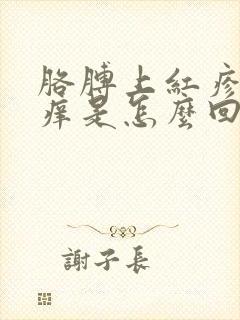 胳膊上紅疹
痒是怎麼回
謝子長